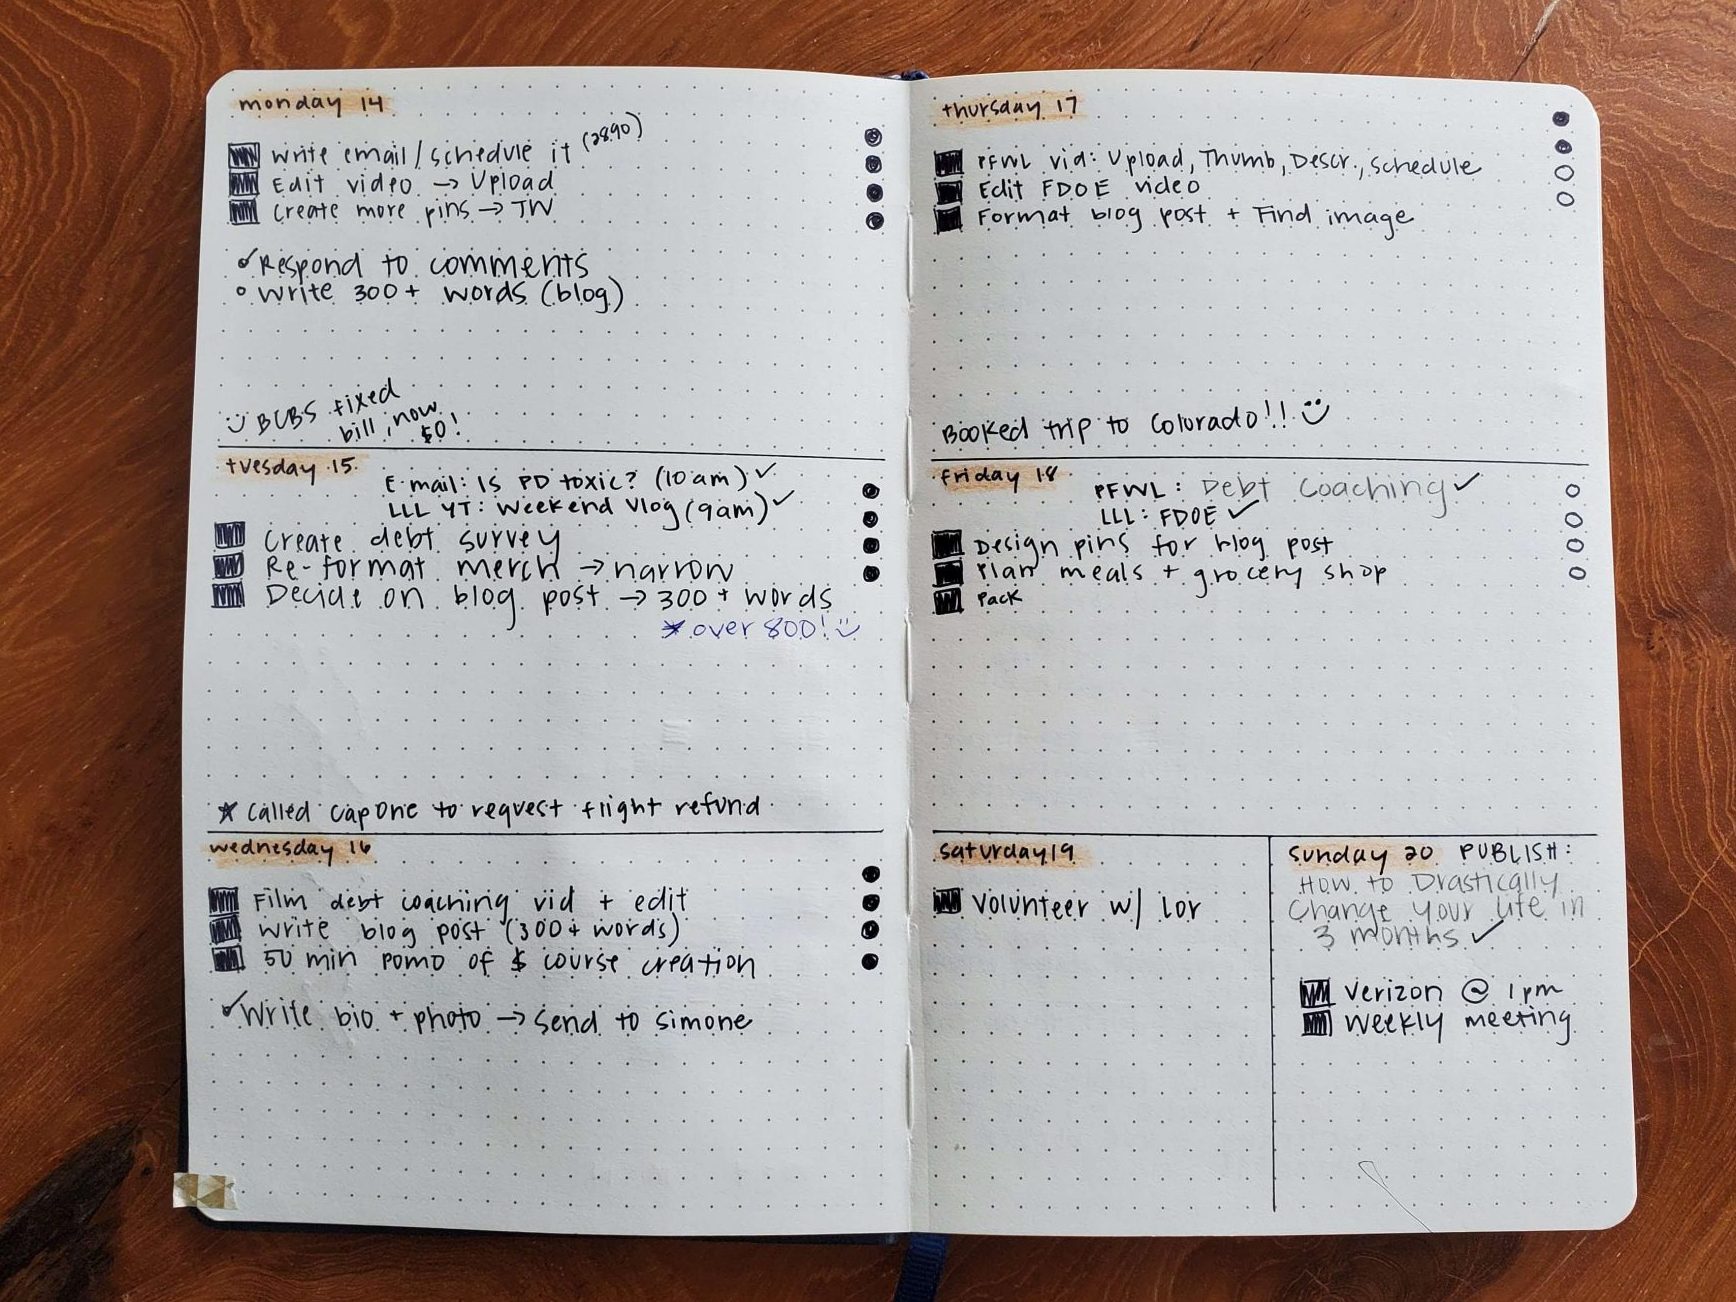 monday 14
write email/schedule it (2890)
Edit video → Upload
Create more pins → TW
Respond to comments
write 300+ words (blog)
BCBS fixed
bill, now
$0!
tuesday 15
E-mail: Is PD toxic? (10am) ✓
LLL YT: Weekend Vlog (9am) ✓
Create debt survey
Re-format merch → narrow
Decide on blog post → 300+ words
* over 800!
* Called CapOne to request flight refund
wednesday 16
Film debt coaching vid + edit
Write blog post (300+ words)
50 min pomo of $ course creation
✓ Write bio + photo → send to simone
thursday 17
PFWL vid: Upload, Thumb, Descr., schedule
Edit FDOE video
Format blog post + Find image
Booked trip to Colorado!!
friday 18
PFWL: Debt Coaching ✓
LLL: FDOE ✓
Design pins for blog post
Plan meals + grocery shop
Pack
saturday 19
Volunteer w/ Lor
sunday 20 PUBLISH:
How to Drastically
Change Your Life in
3 months ✓
Verizon @ 1pm
Weekly meeting